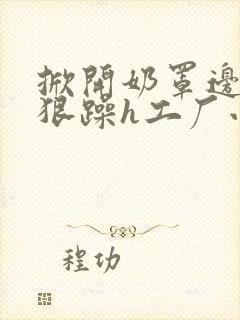 掀開奶罩邊
狠躁h工厂
程功